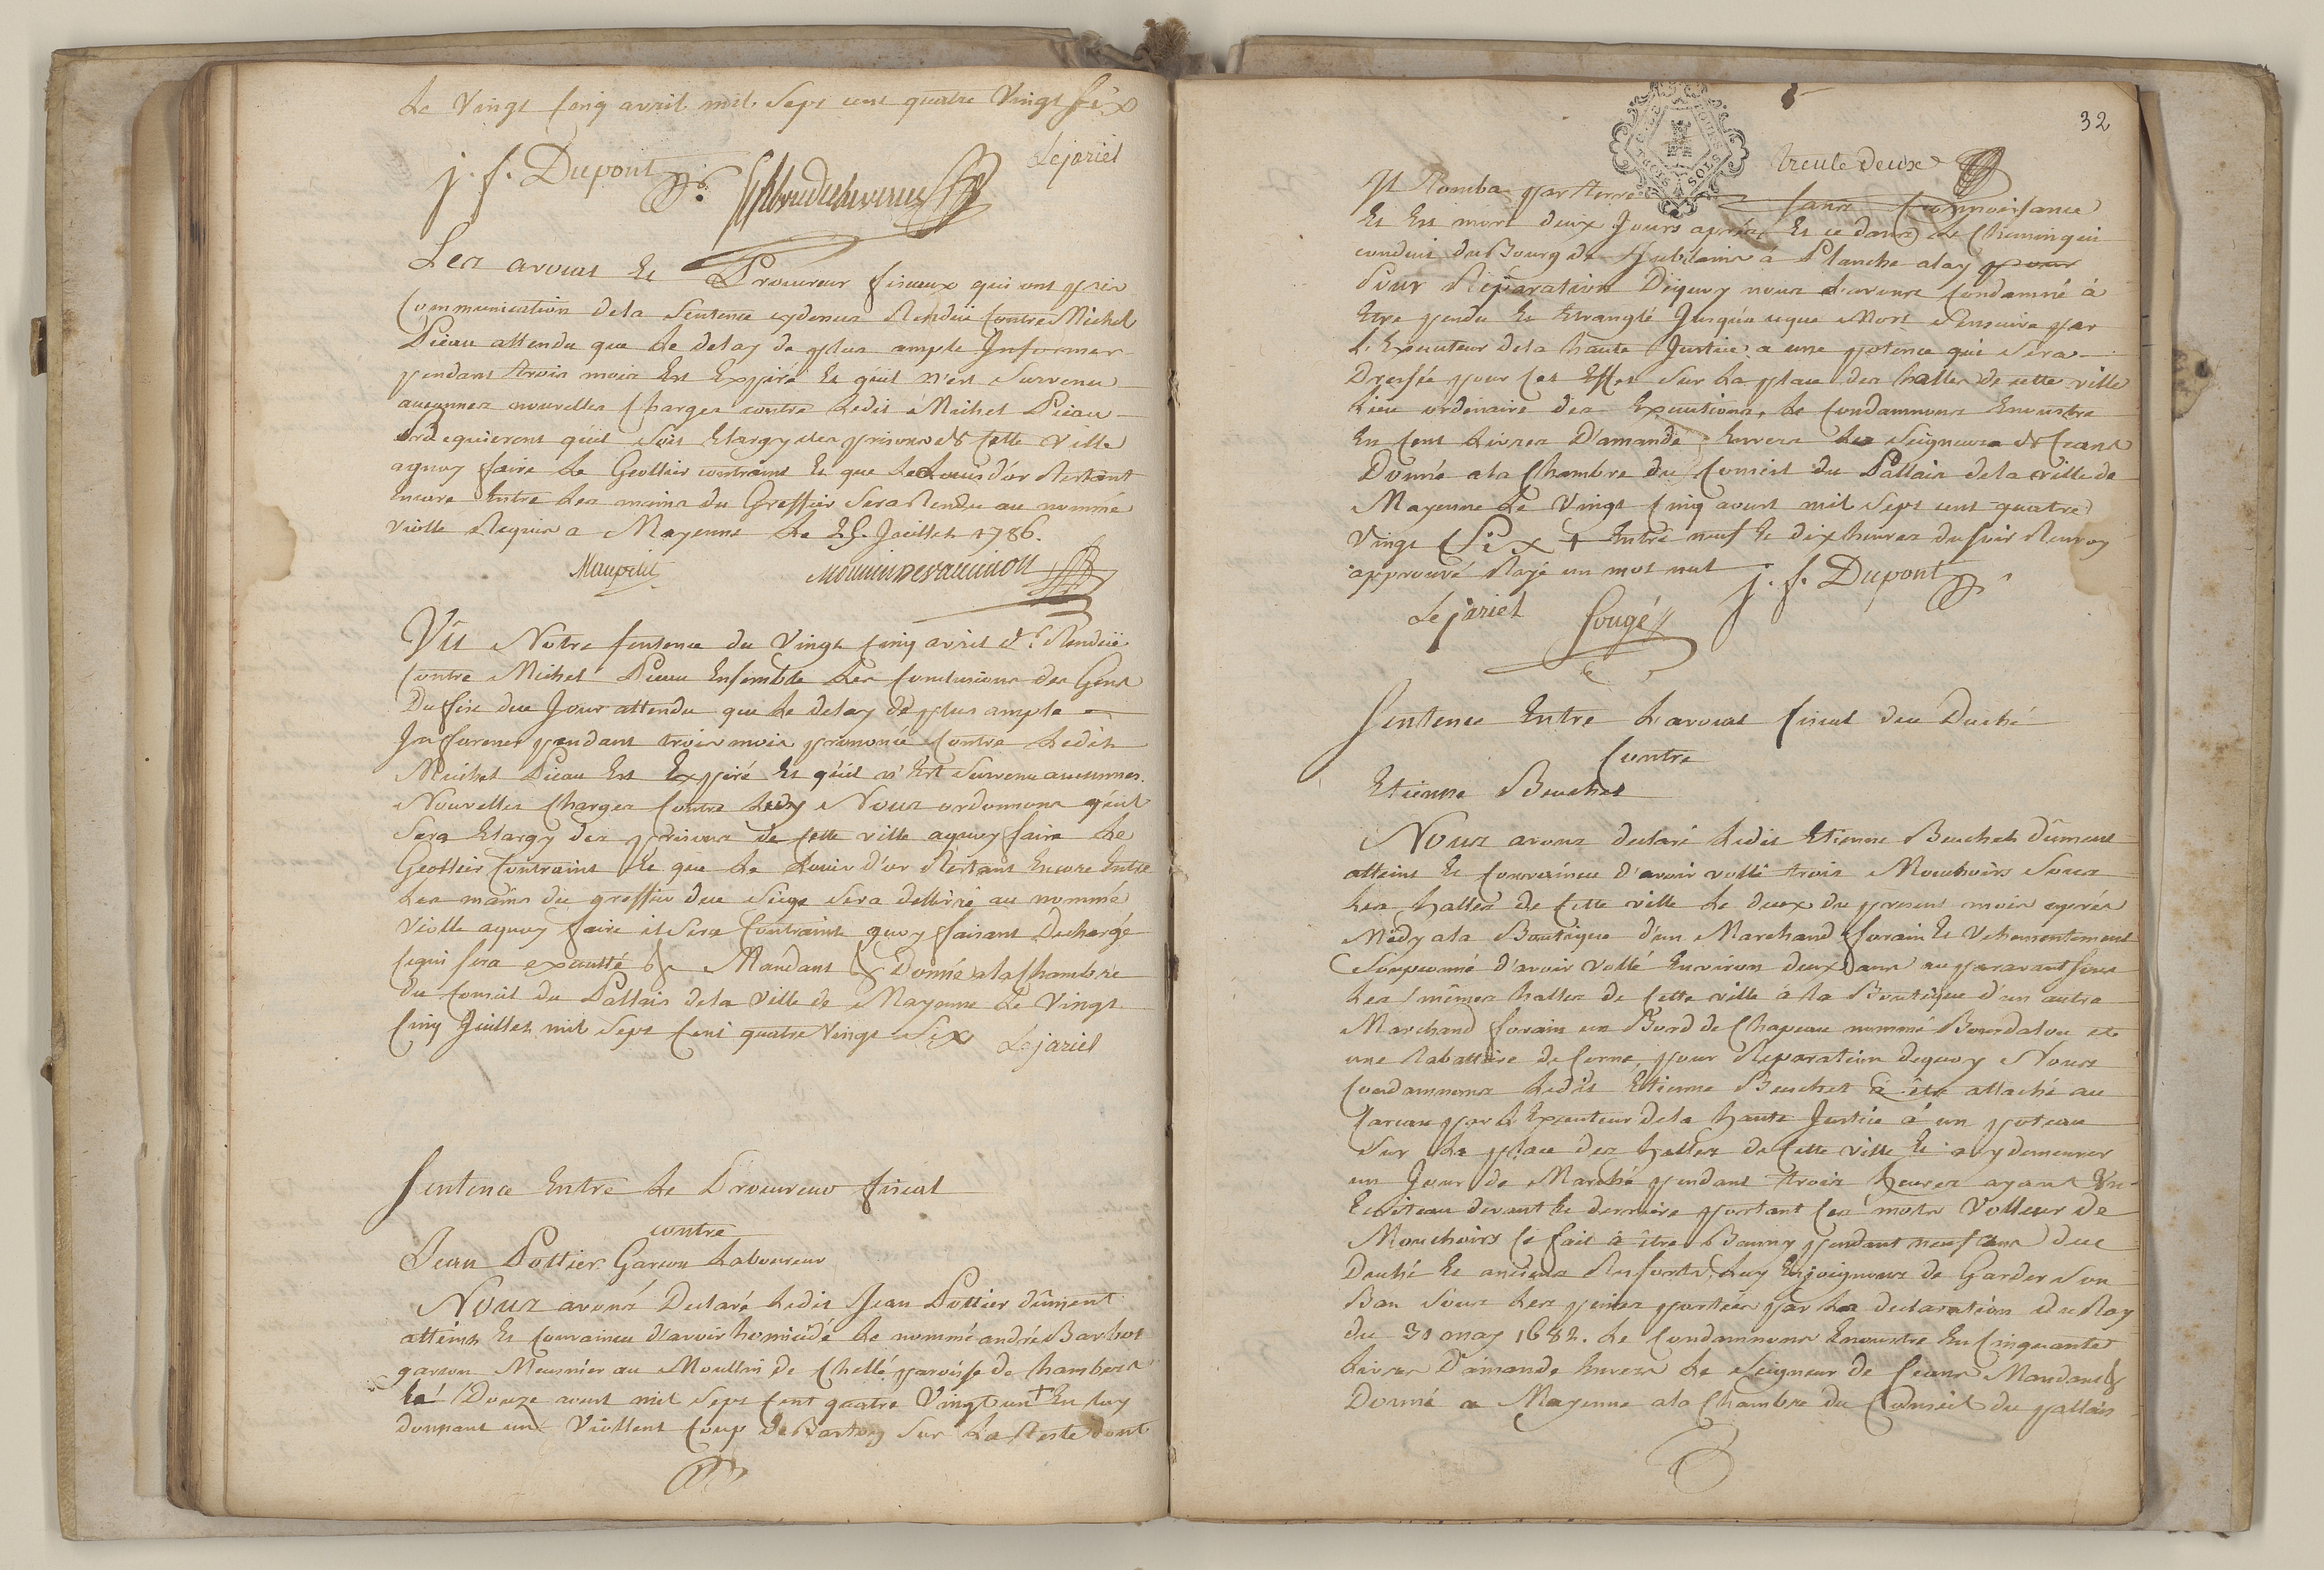 Le Vingt Cinq avril mil Sept cent quatre Vingt Six
Lejariel
j. f. Dupont
Les avocat Et Procureur fiscaux qui ont pris
Communication dela Sentence cydenus Rendüe Contre Michel
Pieau attendu que Le delay de plus ample Informer
pendant trois mois Est Expiré Et qüil n'est Survenu
aucunnes nouvelles Charges contre Ledit Michel Pieau
requierent qüil soit Elargy des prisons de Cette Ville
aquoy faire Le Geollier contraint Et que Le Louis d'or Restant
Encore Entre Les mains du Greffier Sera Rendu au nommé
Violle Requis a Mayenne Le 25. Juillet 1786.
Maupetit
Vû Notre Sentence du Vingt Cinq avril dr. Rendüe
Contre Michel Pieau Ensemble Les Conclusions des Gens
Du fisc due Jour attendu que Le delay de plus ample
Informer pendant trois mois prononcé Contre Ledit
Michel Pieau Est Expiré Et qüil n'Est Survenu aucunnes
Nouvelles Charges Contre Ledy Nous ordonnons qüil
Sera Elargy des prisons de Cette ville aquoy faire Le
Geollier Contraint Et que Le Louis d'or Restant Encore Entre
Les mains du greffier due Siége Sera dellivré au nommé
Violle aquoy faire il Sera Contraint quoy faisant Decharge
Cequi sera executté & Mandant & Donné ala Chambre
du Conseil du Pallais dela Ville de Mayenne Le Vingt
Cinq Juillet mil Sept Cent quatre Vingt Six Lejariel
Sentence Entre Le Procureur fiscal
contre
Jean Pottier Garcon Laboureur
Nous avons Declaré Ledit Jean Pottier dûment
atteint Et Convaincu d'avoir homicidé Le nommé andré Barbot
garcon Meusnier au Moullin de Chellé paroisse de hambers
Le Douze aout mil Sept Cent quatre Vingt un + En luy
donnant un Viollent Coup de Baston Sur La Teste dont
32
trente deux
Il Tomba par terre sans Connoissance
Et Est mort deux Jours après Et ce dans Le Chemin qui
conduit du Bourg de Jublains a Planche alay pour
Pour Réparation Dequoy nous L'avons Condamné à
Etre pendu Et Etranglé Jusqu'a ceque Mort S'ensuive par
L'Executeur dela haute Justice a une potence qui Sera
Dressée pour Cet Effet Sur La place des halles de cette ville
Lieu ordinaire des Executions, Le Condamnons Enoustre
En Cent Livres D'amande Envers Les Seigneurs de Ceans
Donné ala Chambre du Conseil du Pallais dela ville de
Mayenne Le Vingt Cinq aoust mil Sept cent quatre
Vingt Six + Entre neuf Et dix heures du soir Renvoy
approuvé Rayé un mot nul j. f. Dupont
Lejariel fougé
Sentence Entre L'avocat fiscal due Duché
Contre
Etienne Beuchet
Nous avons declaré Ledit Etienne Beuchet dûment
atteint Et Convaincu d'avoir vollé trois Mouchoirs Sous
Les halles de Cette ville Le deux du present mois après
Midy ala Boutique d'un Marchand forain Et Vehementement
Soupconné d'avoir Vollé Environ deux ans auparavant sous
Les mêmes halles de Cette ville à la Boutique d'un autre
Marchand forain un Bord de Chapeau nommé Bourdalou et
une Tabattiere de Corne, pour Reparation dequoy Nous
Condamnons Ledit Etienne Beuchet à être attaché au
Carcan par L'Executeur dela haute Justice à un poteau
Sur La place des halles de Cette ville Et a y demeurer
un Jour de Marché pendant trois heures ayant Un
Ecriteau devant Et derriere portant Ces mots Volleur de
Mouchoirs Ce fait à être Banny pendant neuf ans due
Duché Et anciens Ressorts, Luy Enjoignons de Garder Son
Ban Sous Les peines portées par La declaration du Roy
du 31 may 1682. Le Condamnons Enoustre En Cinquante
Livres D'amande Envers Le Seigneur de Ceans Mandant &
Donné a Mayenne ala Chambre du Conseil du pallais